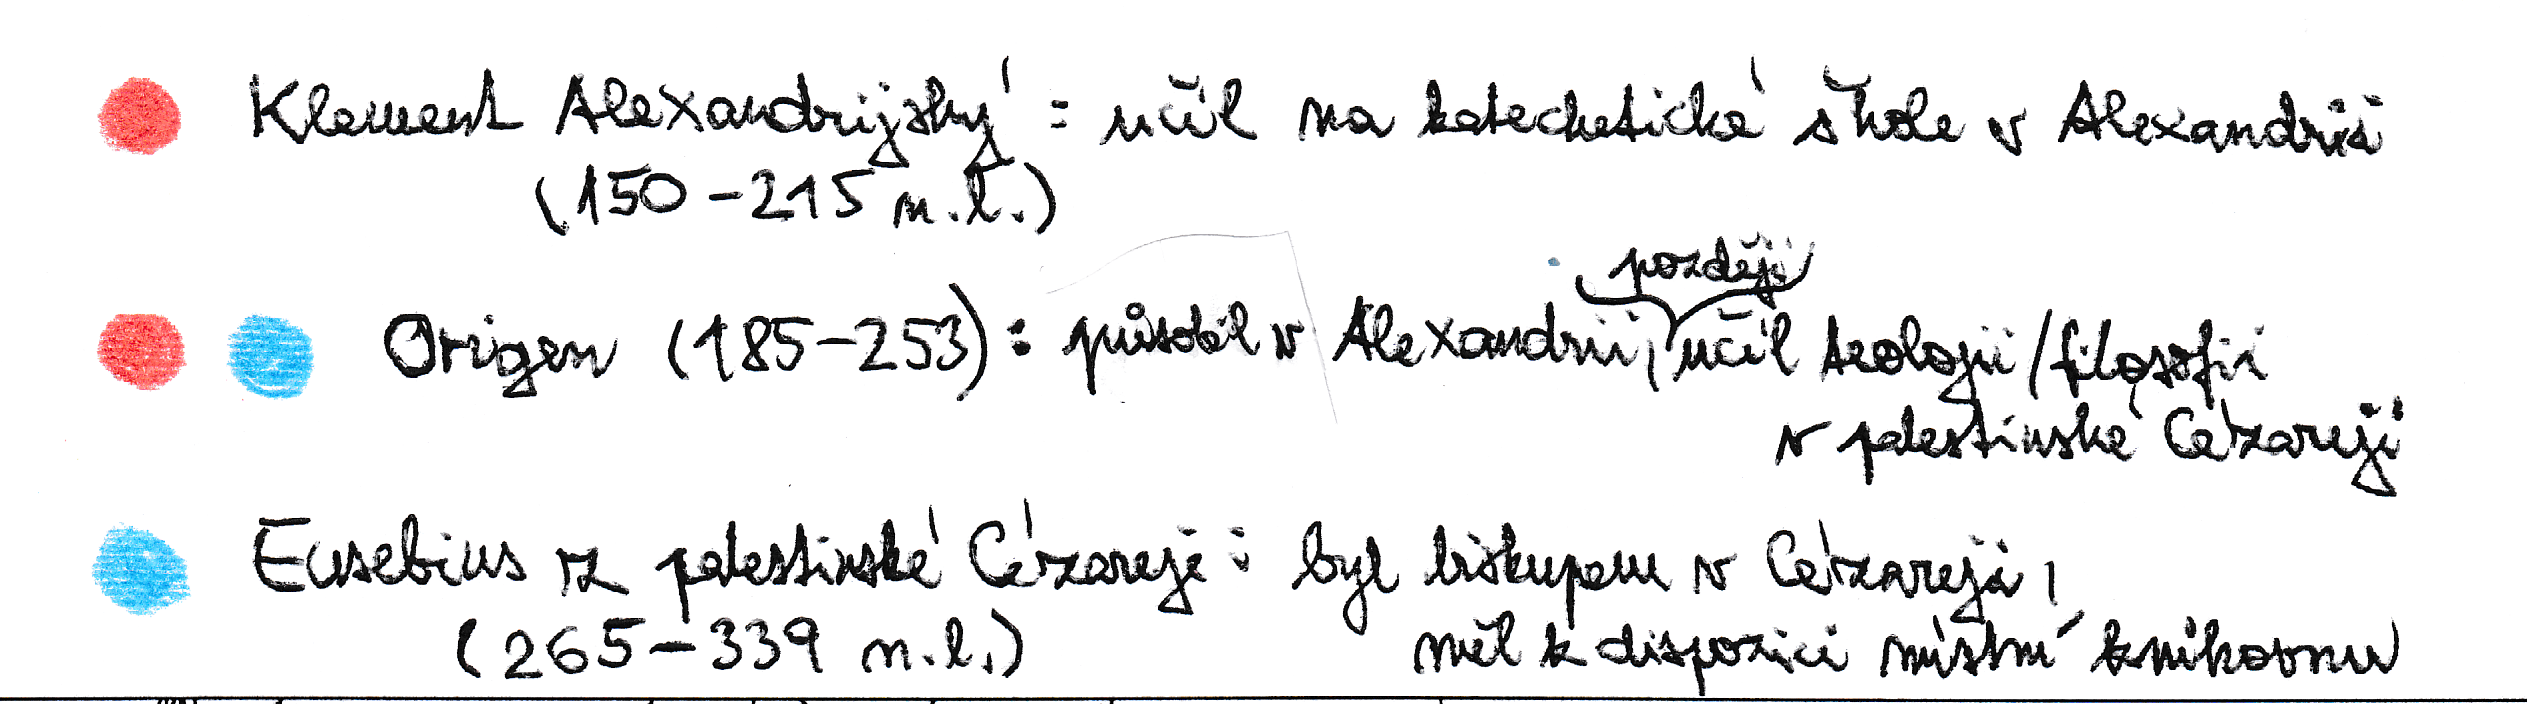 Klement Alexandrijský : učil na katechetické škole v Alexandrii
(150 – 215 n.l.)
později
Origen (185–253) : působil v Alexandrii, učil teologii/filosofii
v palestinské Cézareji
Eusebius z palestinské Cézareje : byl biskupem v Cézareji,
(265–339 n.l.) měl k dispozici místní knihovnu